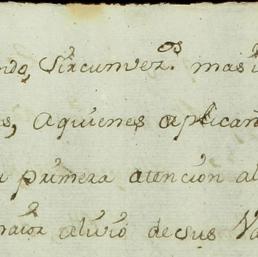 ndo, Circunvez.os mas i
s, aquienes aplican
primera atención al
maior alivio desus Va